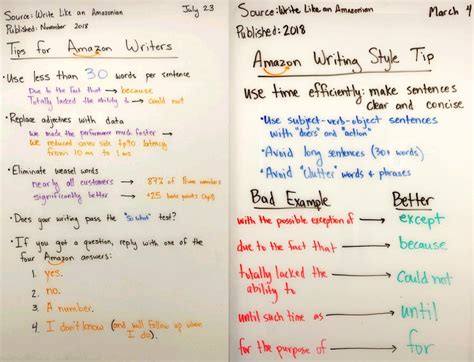 Source: Write Like an Amazonian
July 23
Published: November 2018
Tips for Amazon Writers
• Use less than 30 words per sentence
Due to the fact that → because
Totally lacked the ability to → could not
• Replace adjectives with data
We made the performance much faster →
We reduced server side tp90 latency
from 10 ms to 1 ms
• Eliminate weasel words
nearly all customers → 87% of Prime members
significantly better → +25 basis points
• Does your writing pass the "so what" test?
• If you get a question, reply with one of the
four Amazon answers:
1. yes.
2. no.
3. A number.
4. I don't know (and will follow up when
I do).
Source: Write Like an Amazonian
March 4
Published: 2018
Amazon Writing Style Tip
use time efficiently: make sentences
clear and concise
• Use subject-verb-object sentences
with "doers" and "action"
• Avoid long sentences (30+ words)
• Avoid "clutter" words & phrases
Bad Example
Better
with the possible exception of → except
due to the fact that → because
totally lacked the
ability to → could not
until such time as → until
for the purpose of → for